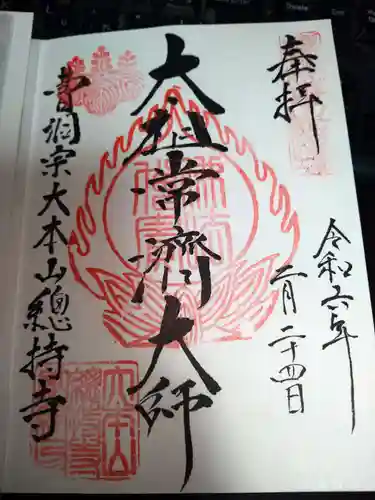 奉拝
令和六年
二月二十四日
太祖常濟大師
曹洞宗大本山總持寺